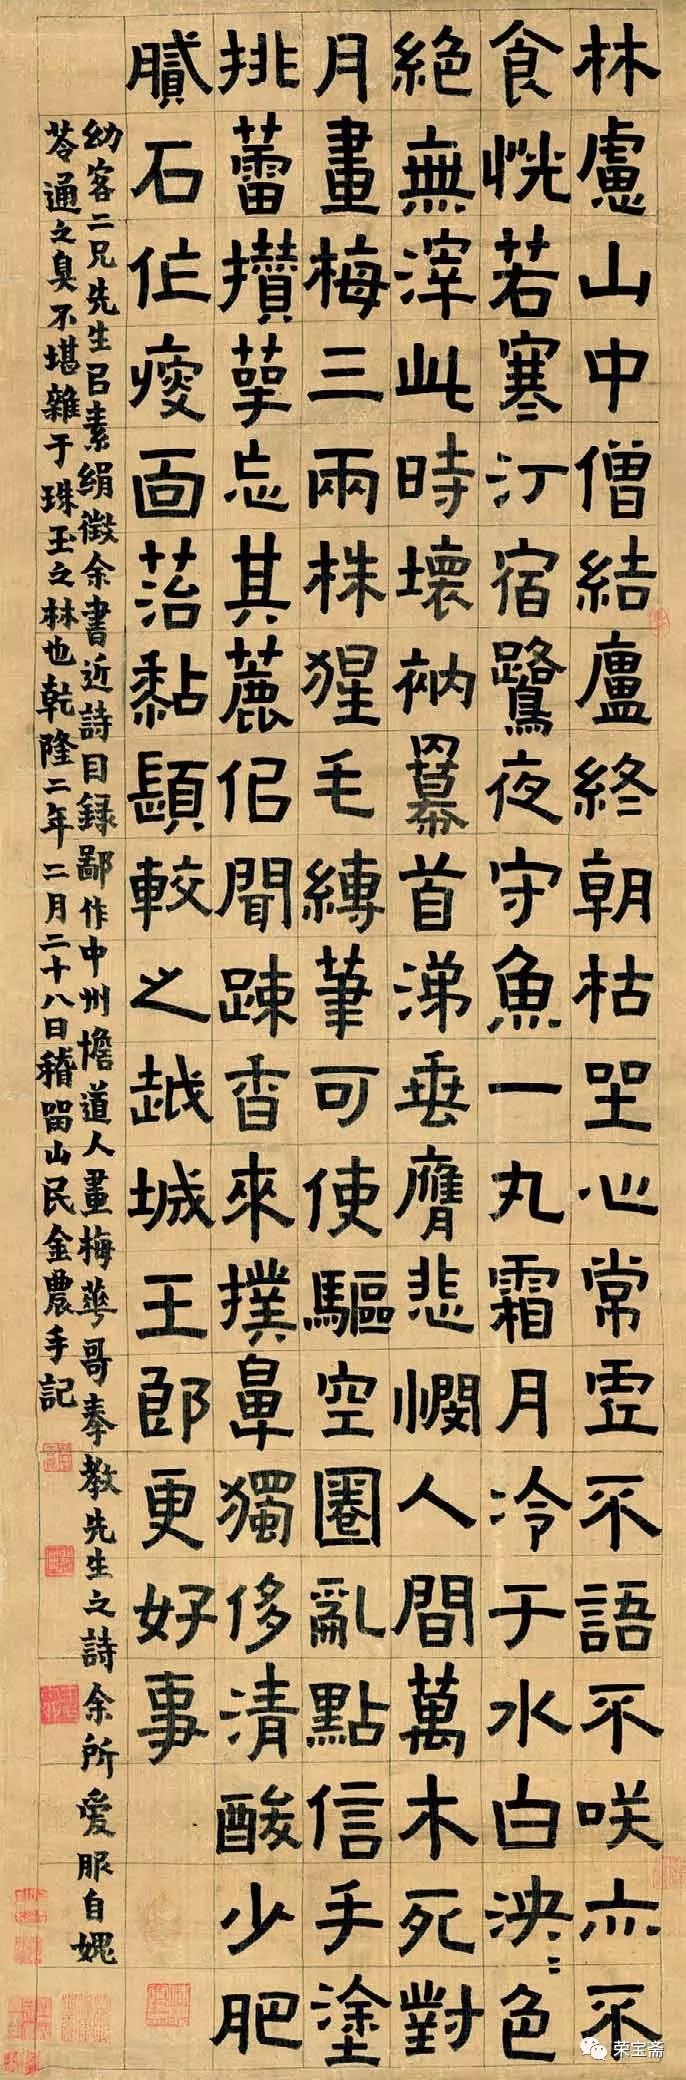 林慮山中僧結廬終朝枯坐心常虛不語不咲亦不
食恍若寒汀宿鷺夜守魚一丸霜月冷于水白泱泱色
絶無滓此時壞衲羃首涕垂膺悲憫人間萬木死對
月畫梅三兩株猩毛縛筆可使驅空圈亂點信手塗
挑蕾攢萼忘其麤但聞踈香來撲鼻獨侈清酸少肥
膩石作瘦面苔黏顋較之越城王郎更好事
幼客二兄先生吕素絹徵余書近詩目録鄙作中州憺道人畫梅華哥奉教先生之詩余所爱服自媿
苓通之臭不堪雜于珠玉之林也乾隆二年二月二十八日稽留山民金農手記
荣宝斋